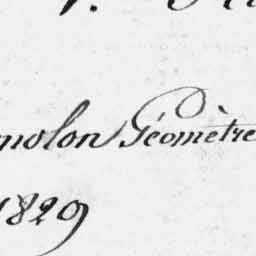 molon Géomètre
1829